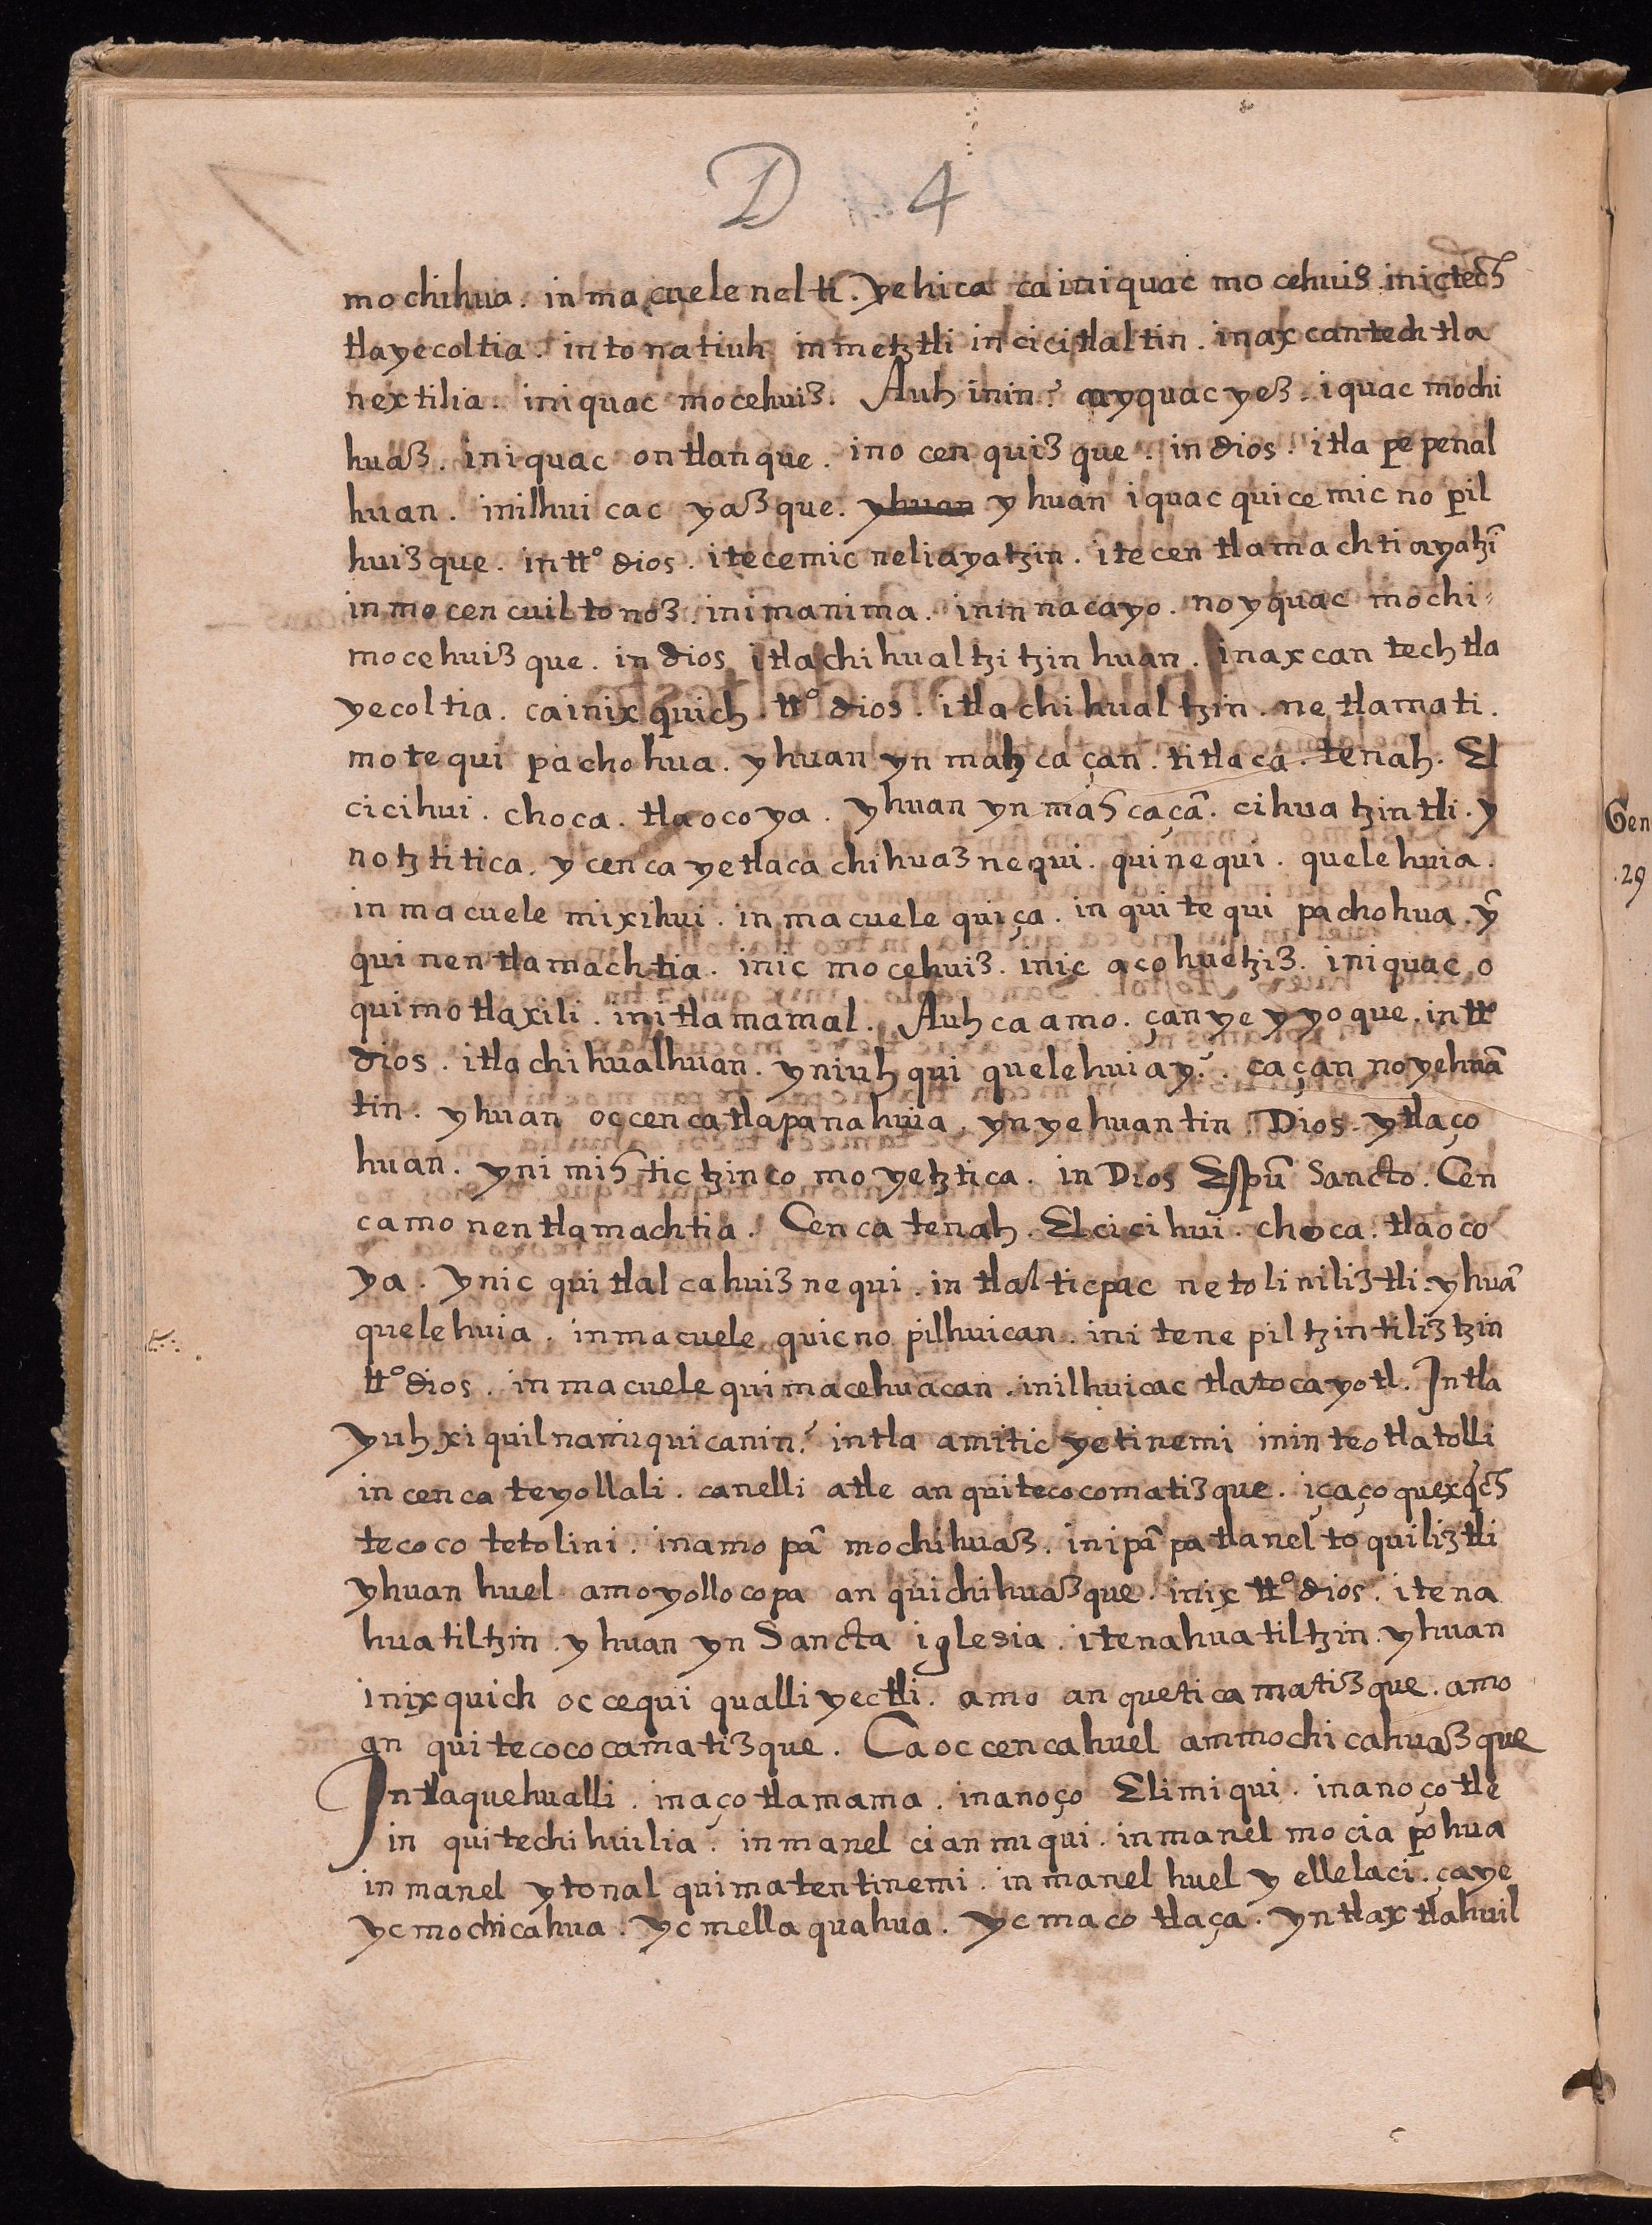 D 4
mochihua. in ma cuele nelti. yehica ca iniquac mo cehuiz inictech
tlayecoltia. in tonatiuh in metztli in cicitlaltin. inaxcantech tla
nextilia. iniquac mocehuiz. Auh inin? ayquac yez. iquac mochi
huaz. iniquac ontlanque. ino cenquizque. in dios. itla pepenal
huan. inilhuicac yazque. yhuan yhuan iquac quicemic no pil
huizque. in tt.º dios. itecemic neliayatzin. itecen tlamachtiayatzī
in mo cen cuiltonoz. inimanima. inin nacayo. no yquac mochi
mocehuizque. in dios itlachihualtzitzinhuan. inaxcan techtla
yecoltia. ca inixquich. tt.º dios. itlachihualtzin. netlamati.
motequipachohua. yhuan yn mah ca çan. titlaca. tenah. El
cicihui. choca. tlaocoya. yhuan yn mah caçā. cihuatzintli. y
notztitica. ycenca yetlacachihuaznequi. quinequi. quelehuia.
in macuele mixihui. in macuele quiça. in quitequipachohua. ȳ
quinentlamachtia. inic mocehuiz. inic acohuetziz. iniquac o
quimotlaxili. initlamamal. Auh ca amo. çanye yyoque. in tt.º
dios. itlachihualhuan. yniuhqui quelehuiay? ca çan noyehuā
tin. yhuan occencatlapanahuia. ynyehuantin Dios. ytlaço
huan. ynimihtictzinco moyetztica. in Dios Espū Sancto. Cen
camonentlamachtia. Cenca tenah. Elcicihui. choca. tlaoco
ya. ynic quitlalcahuiznequi. in tlalticpac netoliniliztli. yhuā
quelehuia. inmacuele quicnopilhuican. ini tenepiltzintiliztzin
tt.º dios. in macuele quimacehuacan. inilhuicac tlatocayotl. Intla
yuhxiquilnamiquicanin? intla amitic yetinemi inin teotlatolli
in cenca teyollali. canelli atle anquitecocomatizque. içaço quexqch
tecoco tetolini. inamopā mochihuaz. inipāpatlaneltoquiliztli
yhuan huel amoyollocopa anquichihuazque. inix tt.º dios. itena
huatiltzin. yhuan yn Sancta iglesia. itenahuatiltzin. yhuan
inixquich occequi qualli yectli. amo anqueticamatizque. amo
an quitecococamatizque. Ca oc cencahuel ammochicahuazque
Intlaquehualli. inaçotlamama. inanoço Elimiqui. inanoçotle
in quitechihuilia? inmanel cianmiqui. inmanel mociapohua
inmanel ytonal quimatentinemi. in manel huel y ellelaci. çaye
yc mochicahua. yc mellaquahua. yc macotlaça. yn tlaxtlahuil
Gen
.29